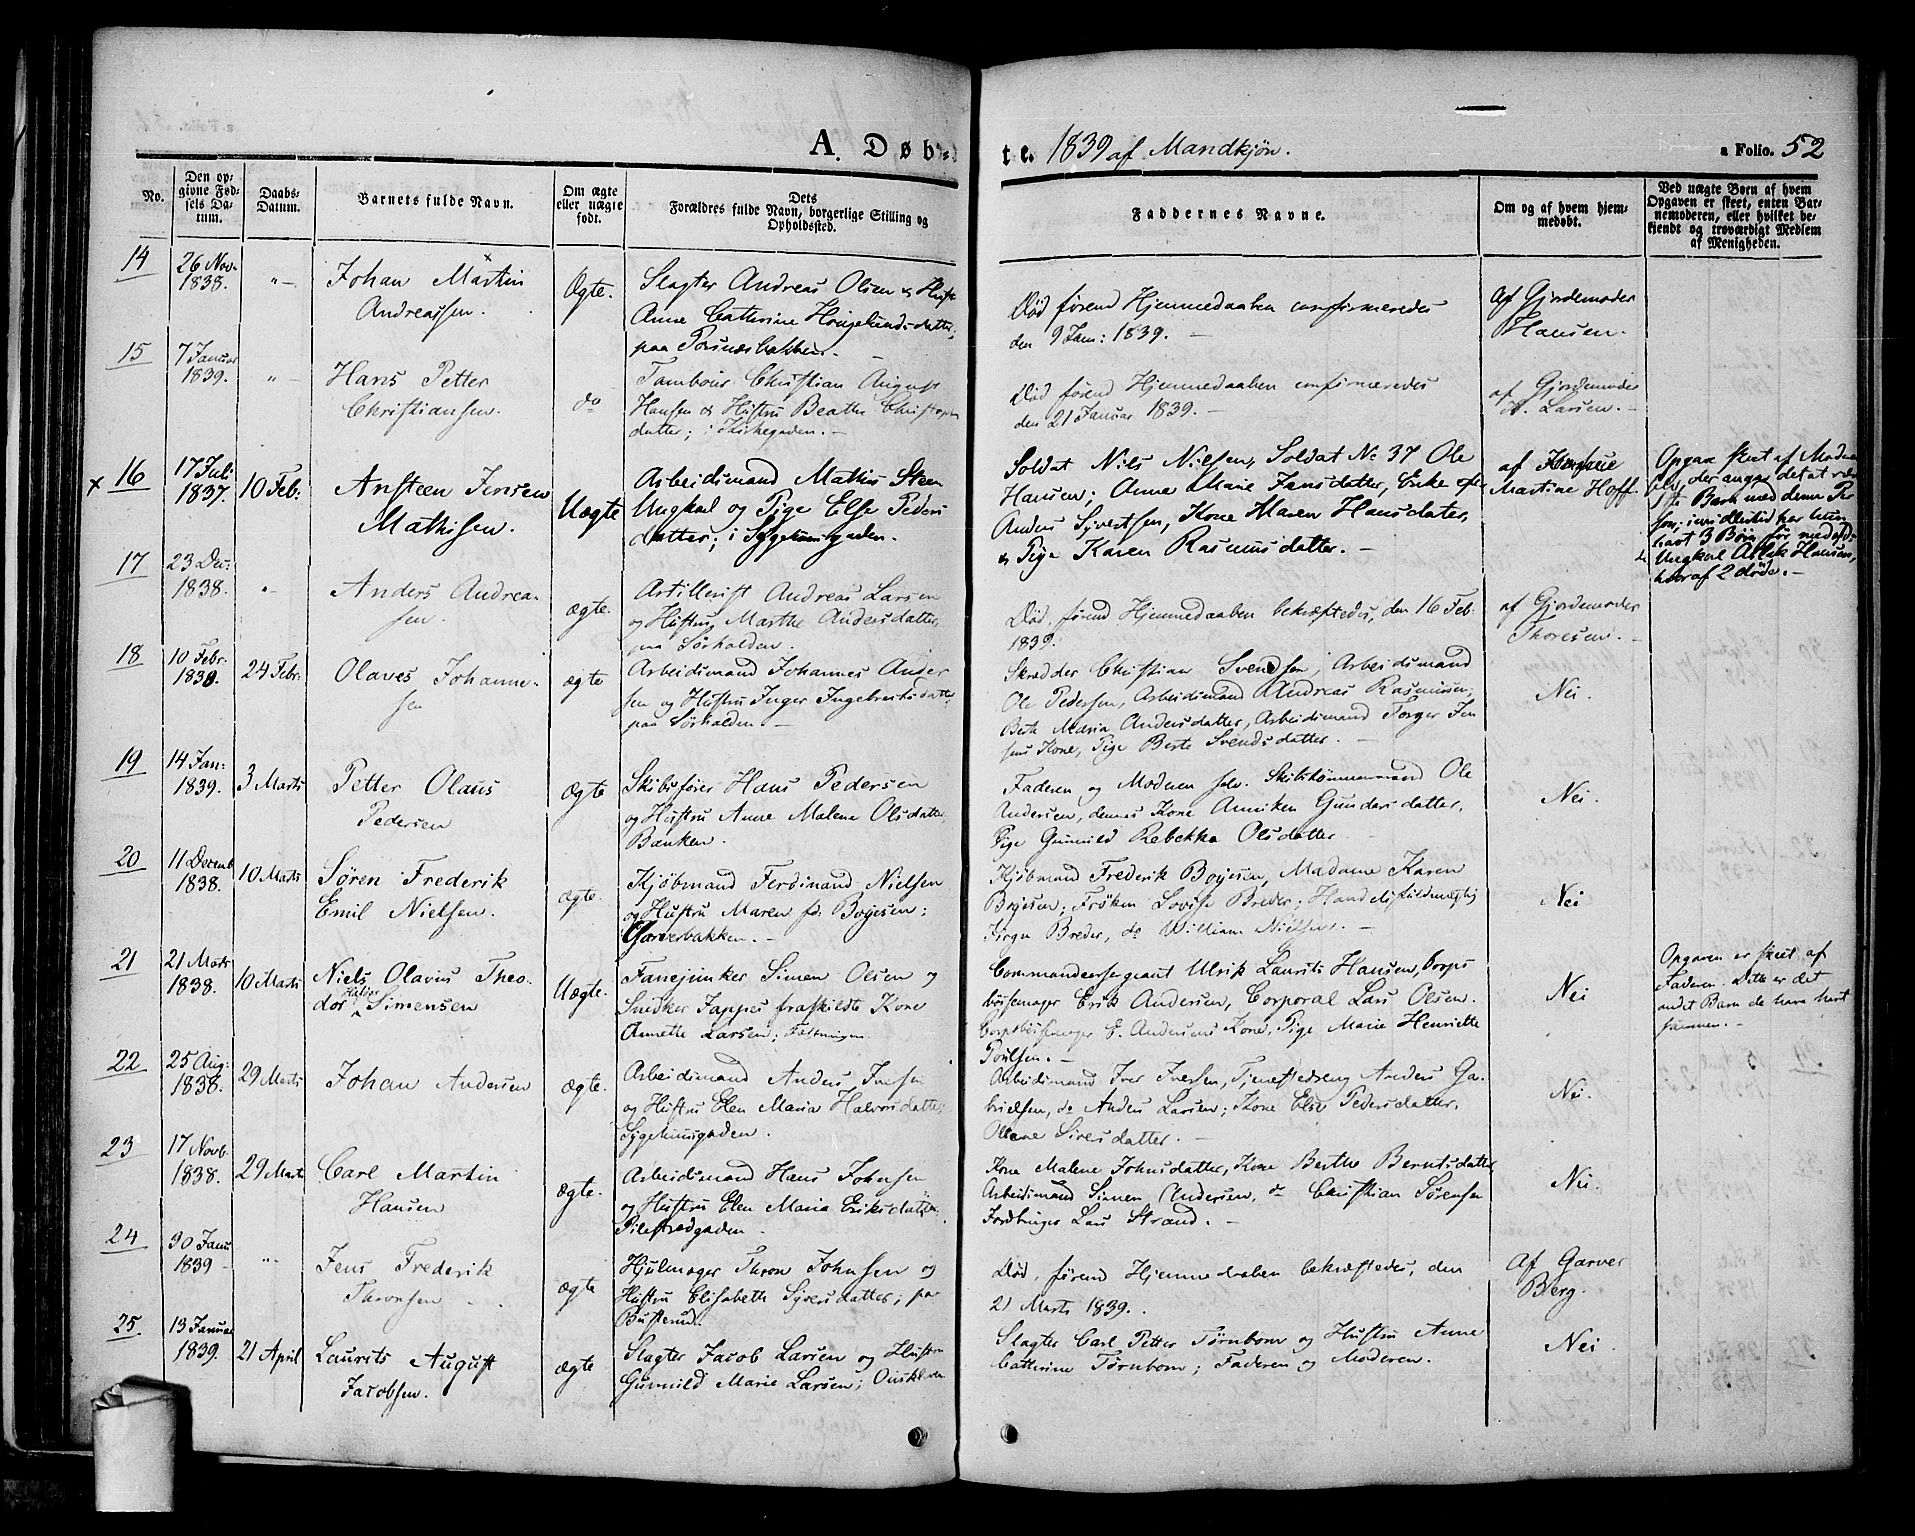 A. Døb=
te. 1839 af Mandkjøn.
a Folio. 52
No.
Den op-
givne Fød-
sels Da-
tum.
Daabs-
Datum.
Barnets fulde Navn.
Om ægte
eller uægte
født.
Dets
Forældres fulde Navn, borgerlige Stilling og
Opholdssted.
Faddernes Navne.
Om og af hvem hjem-
medøbt.
Ved uægte Børn af hvem
Opgaven er skeet, enten Bar-
nemoderen, eller hvilket be-
kjendt og troværdigt Medlem
af Menigheden.
14
26 Nov.
1838.
"–
Johan Martin
Andreassen.
Ægte.
Slagter Andreas Olsen &
Anne Cathrine
paa
Død førend Hjemmedaaben confirmeredes
den 9 Jan: 1839. –
Af Gjordemoder
Hansen.
15
7 Januar
1839.
"–
Hans Petter
Christiansen.
do
Tambour Christian August
Hansen & Hustru Beathe
datter; i Kirkegaden. –
Død førend Hjemmedaaben confirmeredes
den 21 Januar 1839. –
af Gjordemoder
Larsen. –
x 16
17 Juli
1837.
10 Feb:
Ansteen Jensen
Mathisen.
Uægte
Arbeidsmand Mathis Steen
Ungkal og Pige Else Peders
datter; i Sygehuusgaden.
Soldat Nils Nielsen, Soldat No 37 Ole
Hansen; Anne Marie Jansdatter, Enke efter
Anders Syvertsen, Kone Maren Hansdatter,
& Pige Karen Rasmusdatter. –
af
Martine Hoff.
Opgav skeet af Moderen
der angav det at være
1ste Barn med denne Per
son; imidlertid har hun
havt 3 Børn før med
Ungkal Hansen,
hvoraf 2 døde. –
17
23 Dec:
1838.
"
Anders Andrea-
sen.
ægte.
Artillerist Andreas Larsen
og Hustru, Marthe Andersdatter,
paa Sørhalden.
Død, førend Hjemmedaaben bekræftedes, den 16 Feb:
1839.
af Gjordemoder
Thoresen. –
18
10 Febr.
1839.
24 Febr.
Olaves Johanne-
sen
ægte
Arbeidsmand Johannes Ander
sen og Hustru Inger Ingebretsdatter
paa Sørhalden –
Skrædder Christian Svendsen, Arbeidsmand
Ole Pedersen, Arbeidsmand Andreas Rasmusen;
Berte Maria Andersdatter, Arbeidsmand Torger Jen
sens Kone, Pige Berte Svendsdatter. –
Nei.
19
14 Jan:
1839.
3 Marts
Petter Olaus
Pedersen
ægte
Skibsfører Hans Pedersen
og Hustru Anne Malene Olsdatter,
Banken.
Faderen og Moderen selv. Skibstømmermand Ole
Andersen, dennes Kone Anniken Gundersdatter,
Pige Gunnild Rebekka Olsdatter.
Nei.
20
11 Decemb
1838.
10 Marts
Søren Frederik
Emil Nielsen.
ægte.
Kjøbmand Ferdinand Nielsen
og Hustru Maren fd: Bojesen;
Garverbakken. –
Kjøbmand Frederik Bojesen, Madame Karen
Bojesen; Frøken Lovise Breder; Handelsfuldmægtig
Breder, do William Nielsen. –
Nei
21
21 Marts
1838.
10 Marts
Niels Olavus Theo-
dor Simensen
Uægte.
Fanejunker Simen Olsen og
Snedker Jappes fraskildte Kone
Annette Larsen; Fæstningen
Commandeersergeant Ulrik Laurits Hansen, Corps
bøssemager Erik Andersen, Corporal Lars Olsen.
Corpsbøssemager E. Andersens Kone, Pige Marie Henriette
Poulsen. –
Nei
Opgaven er skeet af
Faderen. Dette er det
andet Barn de have havt
sammen. –
22
25 Aug:
1838.
29 Marts
Johan Andersen
ægte.
Arbeidsmand Anders Iversen
og Hustru Elen Maria Halvorsdatter,
Sygehuusgaden.
Arbeidsmand Iver Iversen, Tjenestedreng Anders Ga-
brielsen, do Anders Larsen; Kone Else Pedersdatter,
Olene Siversdatter. –
Nei.
23
17 Novb.
1838.
29 Marts
Carl Martin
Hansen
ægte.
Arbeidsmand Hans Johnsen
og Hustru Elen Maria Eriksdatter
Pilestrædgaden.
Kone Malene Johnsdatter, Kone Berthe Berntsdatter
Arbeidsmand Simen Andersen, do Christian Sørensen
Lars Strand. –
Nei.
24
30 Janu
1839 –
"–
Jens Frederik
Thronsen
ægte
Hjulmager Thron Johnsen og
Hustru Elisabeth Syversdatter; paa
Død, førend Hjemmedaaben bekræftedes, den
21 Marts 1839.
Af Garver
Berg.
25
13 Januar
1839.
21 April
Laurits August
Jacobsen.
ægte
Slagter Jacob Larsen og Hustru
Gunnild Marie Larsen;
Slagter Carl Petter Tørnbom og Hustru Anne
Catherine Tørnbom; Faderen og Moderen.
Nei.